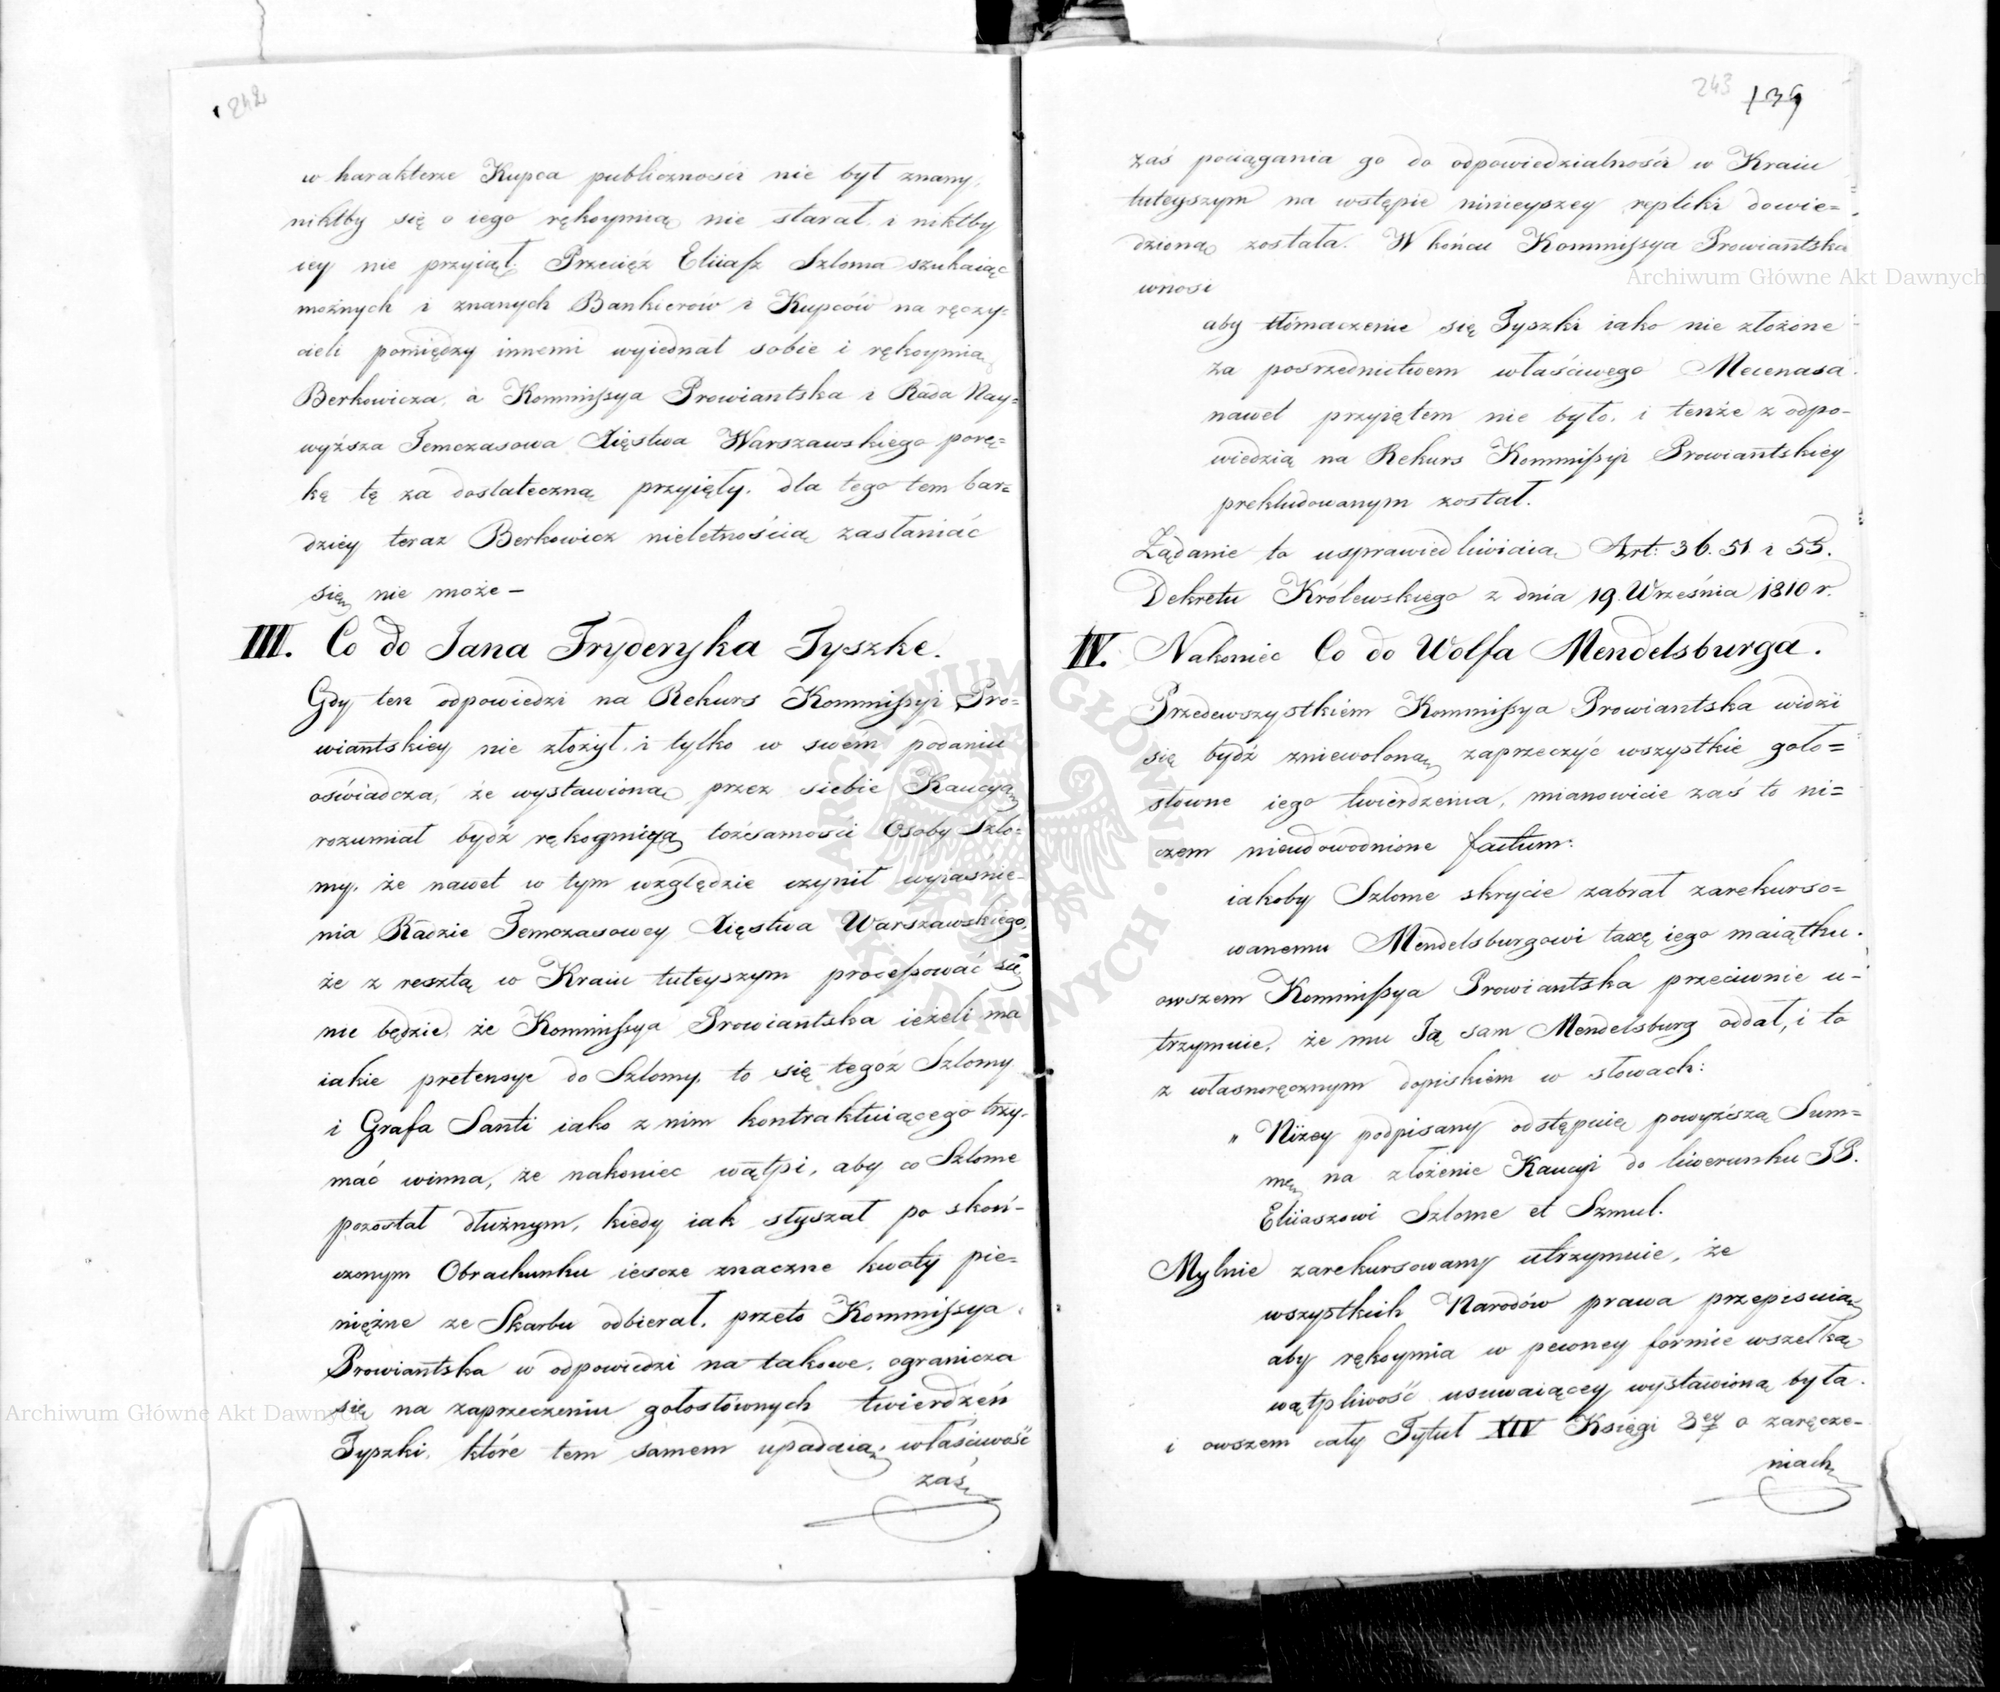 242
w harakterze Kupca publiczności nie był znany,
niktby się o iego rękoymią nie starał i niktby
iey nie przyiął. Przecięż Eliasz Szloma szukaiąc
możnych i znanych Bankierów i Kupców na ręczy=
cieli pomiędzy innemi wyiednał sobie i rękoymią
Berkowicza, a Kommissya Prowiantska i Rada Nay=
wyższa Temczasowa Xięstwa Warszawskiego porę=
kę tę za dostateczną przyięły. dla tego tem bar=
dziey teraz Berkowicz nieletnością zasłaniać
się nie może –
III. Co do Jana Fryderyka Tyszke.
Gdy ten odpowiedzi na Rekurs Kommissyi Pro=
wiantskiey nie złożył, i tylko w swém podaniu
oświadcza, że wystawioną przez siebie Kaucyą
rozumiał bydź rękogmiyą tożsamości Osoby Szlo=
my, że nawet w tym względzie czynił wyiaśnie=
nia Radzie Temczasowey Xięstwa Warszawskiego,
że z resztą w Kraiu tuteyszym processować się
nie będzie, że Kommissya Prowiantska ieżeli ma
iakie pretensye do Szlomy, to się tegoż Szlomy
i Grafa Santi iako z nim kontraktuiącego trzy=
mać winna, że nakoniec wątpi, aby co Szlome
pozostał dłużnym, kiedy iak słyszał po skoń=
czonym Obrachunku iescze znaczne kwoty pie=
niężne ze Skarbu odbierał. przeto Kommissya
Prowiantska w odpowiedzi na takowe, ogranicza
się na zaprzeczeniu gołosłównych twierdzeń
Tyszki, które tem samem upadaią, właściwość
zaś
243 139
zaś pociągania go do odpowiedzialności w Kraiu
tuteyszym na wstępie ninieyszey repliki dowie=
dzioną została. W końcu Kommissya Prowiantska
wnosi
aby tłómaczenie się Tyszki iako nie złożone
za posrzednictwem właściwego Mecenasa
nawet przyiętem nie było, i tenże z odpo=
wiedzią na Rekurs Kommissyi Prowiantskiey
prekludowanym został.
Żądanie to usprawiedliwiaią Art: 36. 51 i 55.
Dekretu Królewskiego z dnia 19 Września 1810 r.
IV. Nakoniec Co do Wolfa Mendelsburga.
Przedewszystkiem Kommissya Prowiantska widzi
się bydź zniewoloną zaprzeczyć wszystkie goło=
słowne iego twierdzenia, mianowicie zaś to ni=
czem nieudowodnione factum:
iakoby Szlome skrycie zabrał zarekurso=
wanemu Mendelsburgowi taxę iego maiątku.
owszem Kommissya Prowiantska przeciwnie u=
trzymuie, że mu Ją sam Mendelsburg oddał, i to
z własnoręcznym dopiskiem w słowach:
„ Niżey podpisany odstępuię powyższą Sum=
mę na złożenie Kaucyi do liwerunku JP.
Eliiaszowi Szlome et Szmul.
Mylnie zarekursowany utrzymuie, że
wszystkich Narodów prawa przepisuią
aby rękoymia w pewney formie wszelką
wątpliwość usuwaiącey wystawioną była.
i owszem cały Tytuł XIV Księgi 3ey o zaręcze=
niach
Archiwum Główne Akt Dawnych
Archiwum Główne Akt Dawnych
ARCHIWUM GŁÓWNE AKT DAWNYCH